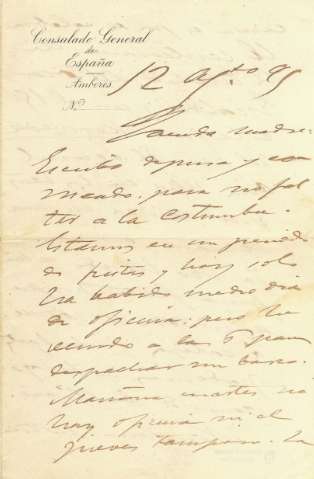 Consulado General
de
España
Amberes
Nº
12 Agto 95
Querida madre:
Escribo deprisa y co
meado. para no fal
tar a la costumbre.
Estamos en un periodo
de fiestas y hoy solo
ha habido medio dia
de oficina. pero he
venido a las 5 para
despachar un barco.
Mañana martes no
hay oficina ni el
jueves tampoco. La